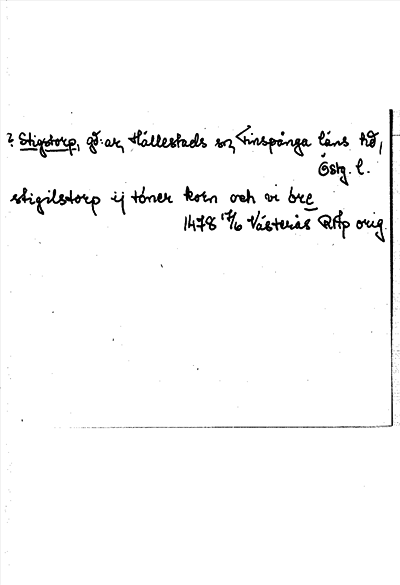 ? Stigstorp, gd:ar, Hällestads sn, Finspånga läns hd,
Östg. l.
stigilstorp ij töner korn och vi öre
1478 17/6 Västerås RAp orig.